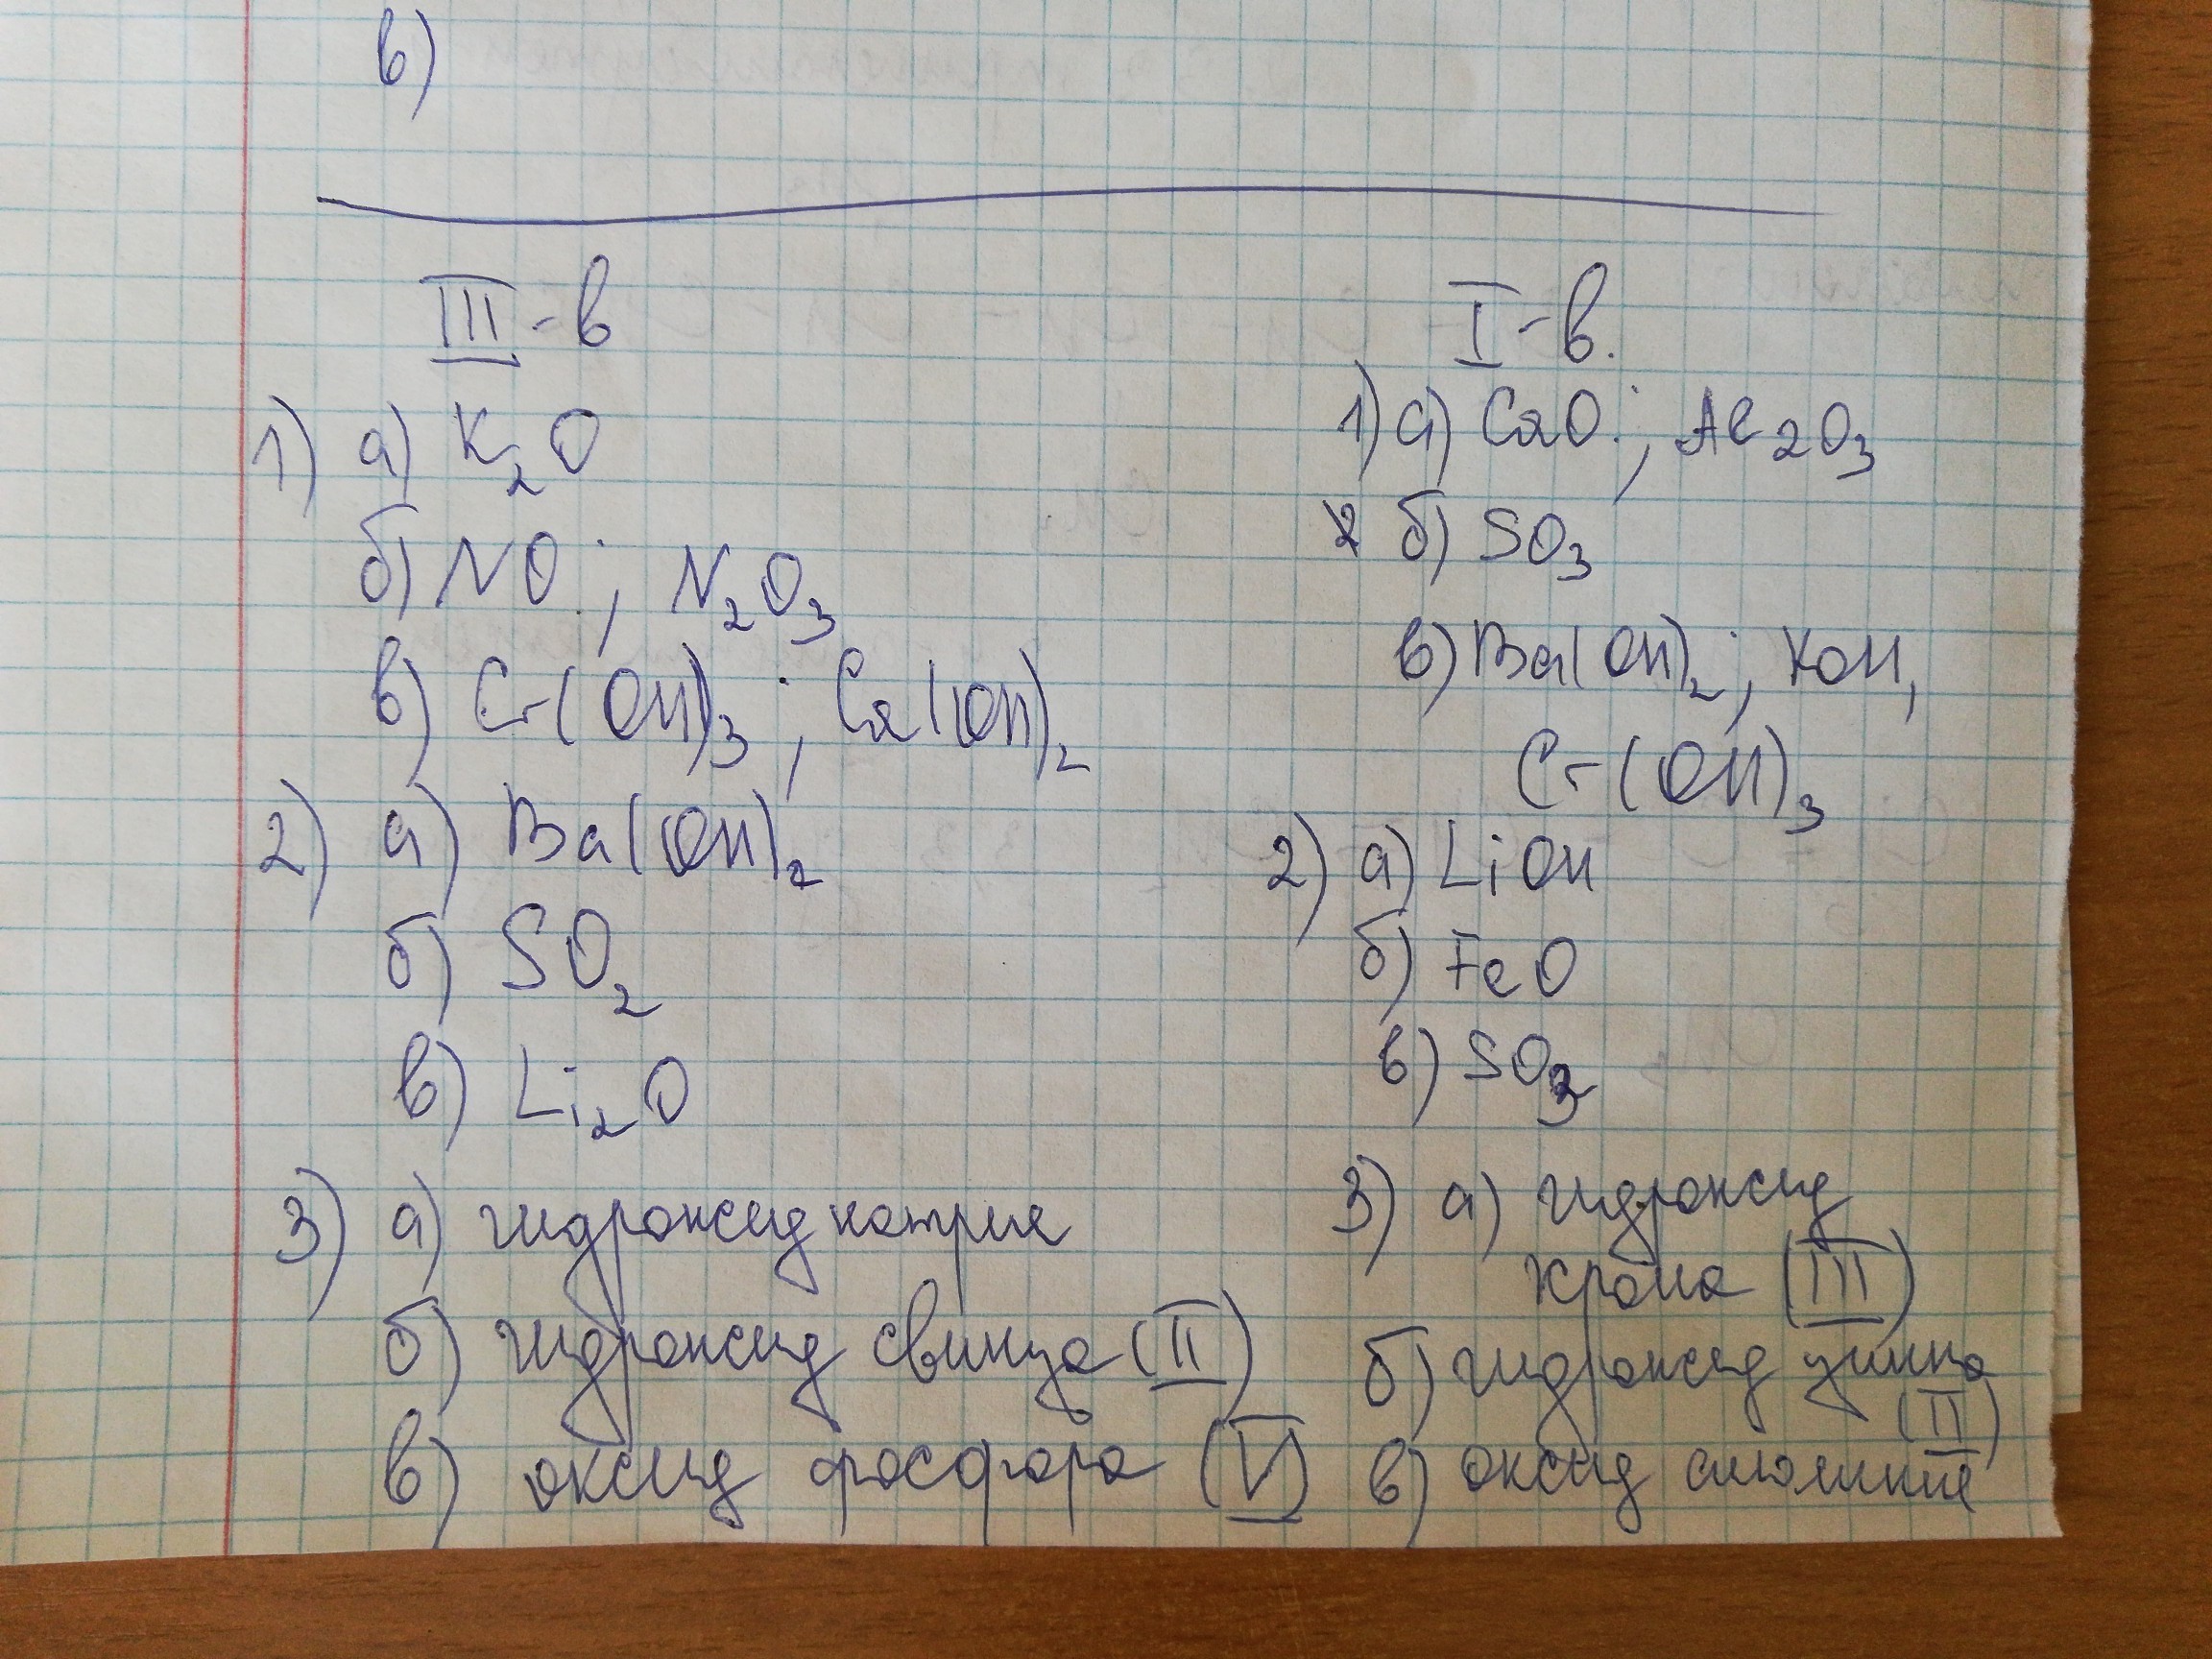 в)
III-в
1) а) K₂O
б) NO; N₂O₃
в) Cr(OH)₃; Ca(OH)₂
2) а) Ba(OH)₂
б) SO₂
в) Li₂O
3) а) гидроксид натрия
б) гидроксид свинца (II)
в) оксид фосфора (V)
I-в.
1) а) CaO; Al₂O₃
б) SO₃
в) Ba(OH)₂; KOH,
Cr(OH)₃
2) а) LiOH
б) FeO
в) SO₃
3) а) гидроксид
хрома (III)
б) гидроксид цинка
(II)
в) оксид алюминия